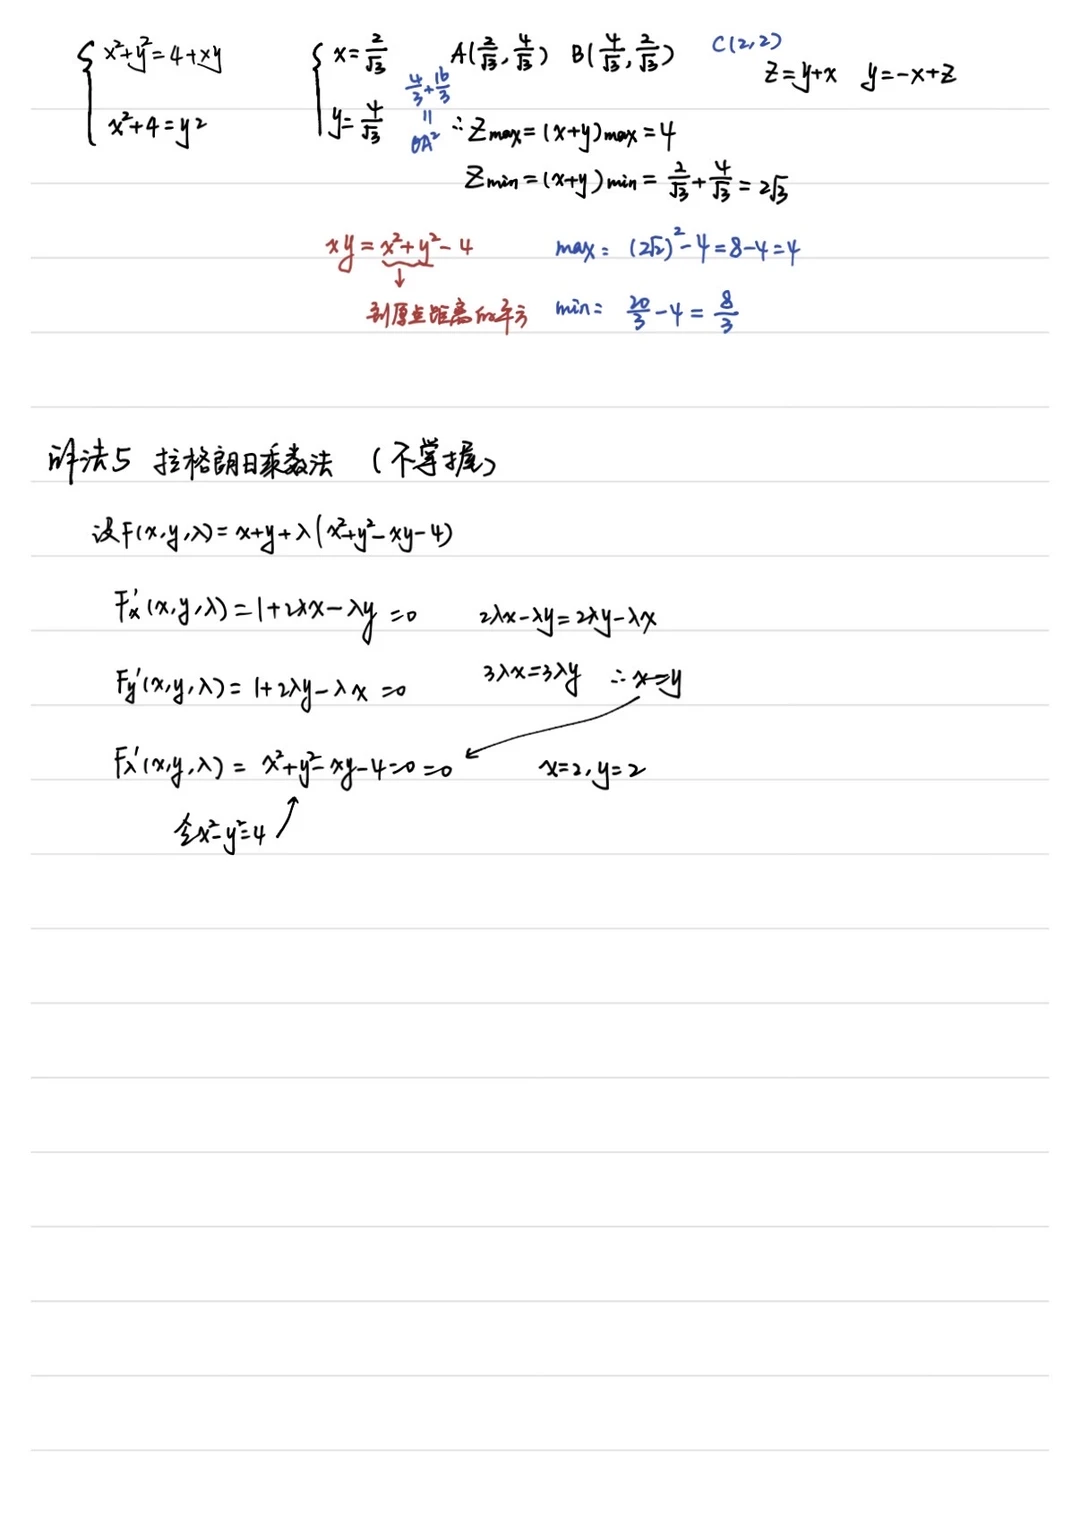 { x²+y²=4+xy   { x=2/√3   A(2/√3, 4/√3)   B(4/√3, 2/√3)   C(2,2)
4/3+16/3   z=y+x   y=-x+z
x²+4=y²   y=4/√3   = OA²   ∴ Zmax=(x+y)max=4
Zmin=(x+y)min=2/√3+4/√3=2√3
xy=x²+y²-4   max= (2√2)²-4=8-4=4
↓
到原点距离的平方   min= 20/3-4=8/3
解法5 拉格朗日乘数法 (不掌握)
设F(x,y,λ)=x+y+λ(x²+y²-xy-4)
Fx'(x,y,λ)=1+2λx-λy=0   2λx-λy=2λy-λx
Fy'(x,y,λ)=1+2λy-λx=0   3λx=3λy   ∴x=y
Fλ'(x,y,λ)= x²+y²-xy-4=0=0   x=2,y=2
令x²-y²=4